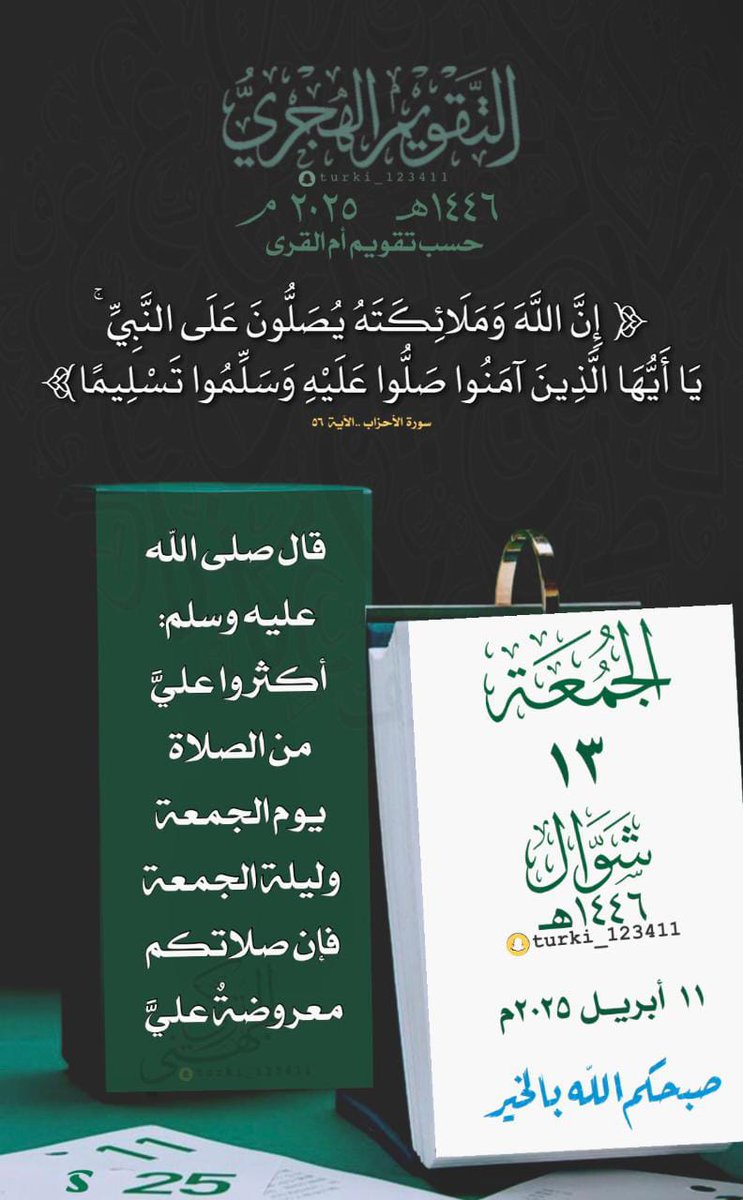 التَّقويم الهُجريُّ
turki_123411
١٤٤٦هـ ٢٠٢٥ م
حسب تقويم أم القرى
﴿ إِنَّ اللَّهَ وَمَلَائِكَتَهُ يُصَلُّونَ عَلَى النَّبِيِّ ۚ
يَا أَيُّهَا الَّذِينَ آمَنُوا صَلُّوا عَلَيْهِ وَسَلِّمُوا تَسْلِيمًا ﴾
سورة الأحزاب ..الآية ٥٦
قال صلى الله
عليه وسلم:
أكثروا عليَّ
من الصلاة
يوم الجمعة
وليلة الجمعة
فإن صلاتكم
معروضةٌ عليَّ
turki_123411
الجُمُعَة
١٣
شَوَّال
١٤٤٦هـ
turki_123411
١١ أبريل ٢٠٢٥م
صبحكم الله بالخير
11
25